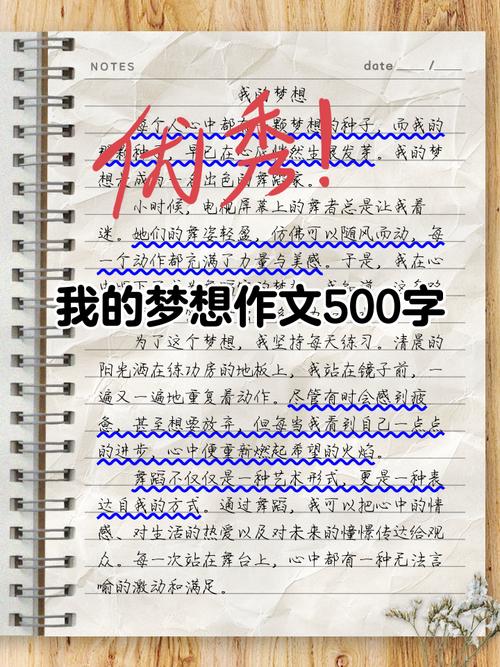 NOTES
date /
我的梦想
每个人心中都有一颗梦想的种子，而我的
那颗种子，早已在心底悄然生根发芽。我的梦
想是成为一名出色的舞蹈家。
小时候，电视屏幕上的舞者总是让我着
迷。她们的舞姿轻盈，仿佛可以随风而动，每
一个动作都充满了力量与美感。于是，我在心
我的梦想作文500字
为了这个梦想，我坚持每天练习。清晨的
阳光洒在练功房的地板上，我站在镜子前，一
遍又一遍地重复着动作。尽管有时会感到疲
惫，甚至想要放弃，但每当我看到自己一点点
的进步，心中便重新燃起希望的火焰。
舞蹈不仅仅是一种艺术形式，更是一种表
达自我的方式。通过舞蹈，我可以把心中的情
感、对生活的热爱以及对未来的憧憬传达给观
众。每一次站在舞台上，心中都有一种无法言
喻的激动和满足。
优秀！